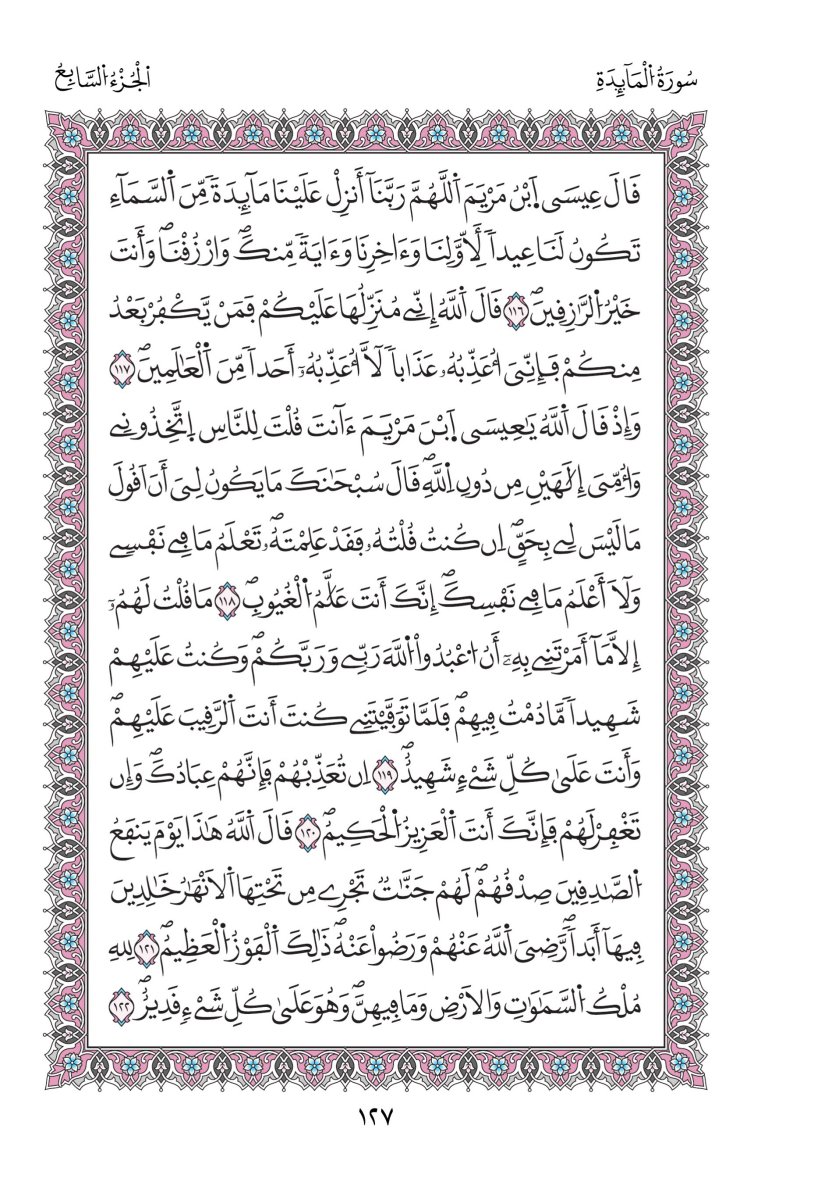 سُورَةُ اُ۬لْمَآئِدَةِ
اَ۬لْجُزْءُ اُ۬لسَّابِعُ
قَالَ عِيسَى اَ۪بْنُ مَرْيَمَ اَ۬للَّهُمَّ رَبَّنَآ أَنزِلْ عَلَيْنَا مَآئِدَةٗ مِّنَ اَ۬لسَّمَآءِ
تَكُونُ لَنَا عِيداٗ لِّأَوَّلِنَا وَءَاخِرِنَا وَءَايَةٗ مِّنكَۖ وَارْزُقْنَاۖ وَأَنتَ
خَيْرُ اُ۬لرَّٰزِقِينَۖ ١١٦ قَالَ اَ۬للَّهُ إِنِّے مُنَزِّلُهَا عَلَيْكُمْ فَمَنْ يَّكْفُرْ بَعْدُ
مِنكُمْ فَإِنِّيَ أُعَذِّبُهُۥ عَذَاباٗ لَّآ أُعَذِّبُهُۥٓ أَحَداٗ مِّنَ اَ۬لْعَٰلَمِينَۖ ١١٧
وَإِذْ قَالَ اَ۬للَّهُ يَٰعِيسَى اَ۪بْنَ مَرْيَمَ ءَآنتَ قُلْتَ لِلنَّاسِ اِ۪تَّخِذُونِے
وَأُمِّيَ إِلَٰهَيْنِ مِن دُونِ اِ۬للَّهِۖ قَالَ سُبْحَٰنَكَ مَا يَكُونُ لِيَ أَنَ اَقُولَ
مَا لَيْسَ لِے بِحَقٍّۖ اِن كُنتُ قُلْتُهُۥ فَقَدْ عَلِمْتَهُۥۖ تَعْلَمُ مَا فِے نَفْسِے
وَلَآ أَعْلَمُ مَا فِے نَفْسِكَۖ إِنَّكَ أَنتَ عَلَّٰمُ اُ۬لْغُيُوبِۖ ١١٨ مَا قُلْتُ لَهُمُۥٓ
إِلَّا مَآ أَمَرْتَنِے بِهِۦٓ أَنُ اُ۟عْبُدُواْ اُ۬للَّهَ رَبِّے وَرَبَّكُمْۖ وَكُنتُ عَلَيْهِمْ
شَهِيداٗ مَّا دُمْتُ فِيهِمْۖ فَلَمَّا تَوَفَّيْتَنِے كُنتَ أَنتَ اَ۬لرَّقِيبَ عَلَيْهِمْۖ
وَأَنتَ عَلَىٰ كُلِّ شَےْءٖ شَهِيدٌۖ ١١٩ اِن تُعَذِّبْهُمْ فَإِنَّهُمْ عِبَادُكَۖ وَإِن
تَغْفِرْ لَهُمْ فَإِنَّكَ أَنتَ اَ۬لْعَزِيزُ اُ۬لْحَكِيمُۖ ١٢٠ قَالَ اَ۬للَّهُ هَٰذَا يَوْمَ يَنفَعُ
اُ۬لصَّٰدِقِينَ صِدْقُهُمْۖ لَهُمْ جَنَّٰتٞ تَجْرِے مِن تَحْتِهَا اَ۬لَانْهَٰرُ خَٰلِدِينَ
فِيهَآ أَبَداٗۖ رَّضِيَ اَ۬للَّهُ عَنْهُمْ وَرَضُواْ عَنْهُۖ ذَٰلِكَ اَ۬لْفَوْزُ اُ۬لْعَظِيمُۖ ١٢١ لِلهِ
مُلْكُ اُ۬لسَّمَٰوَٰتِ وَالَارْضِ وَمَا فِيهِنَّۖ وَهُوَ عَلَىٰ كُلِّ شَےْءٖ قَدِيرٌۖ ١٢٢
١٢٧